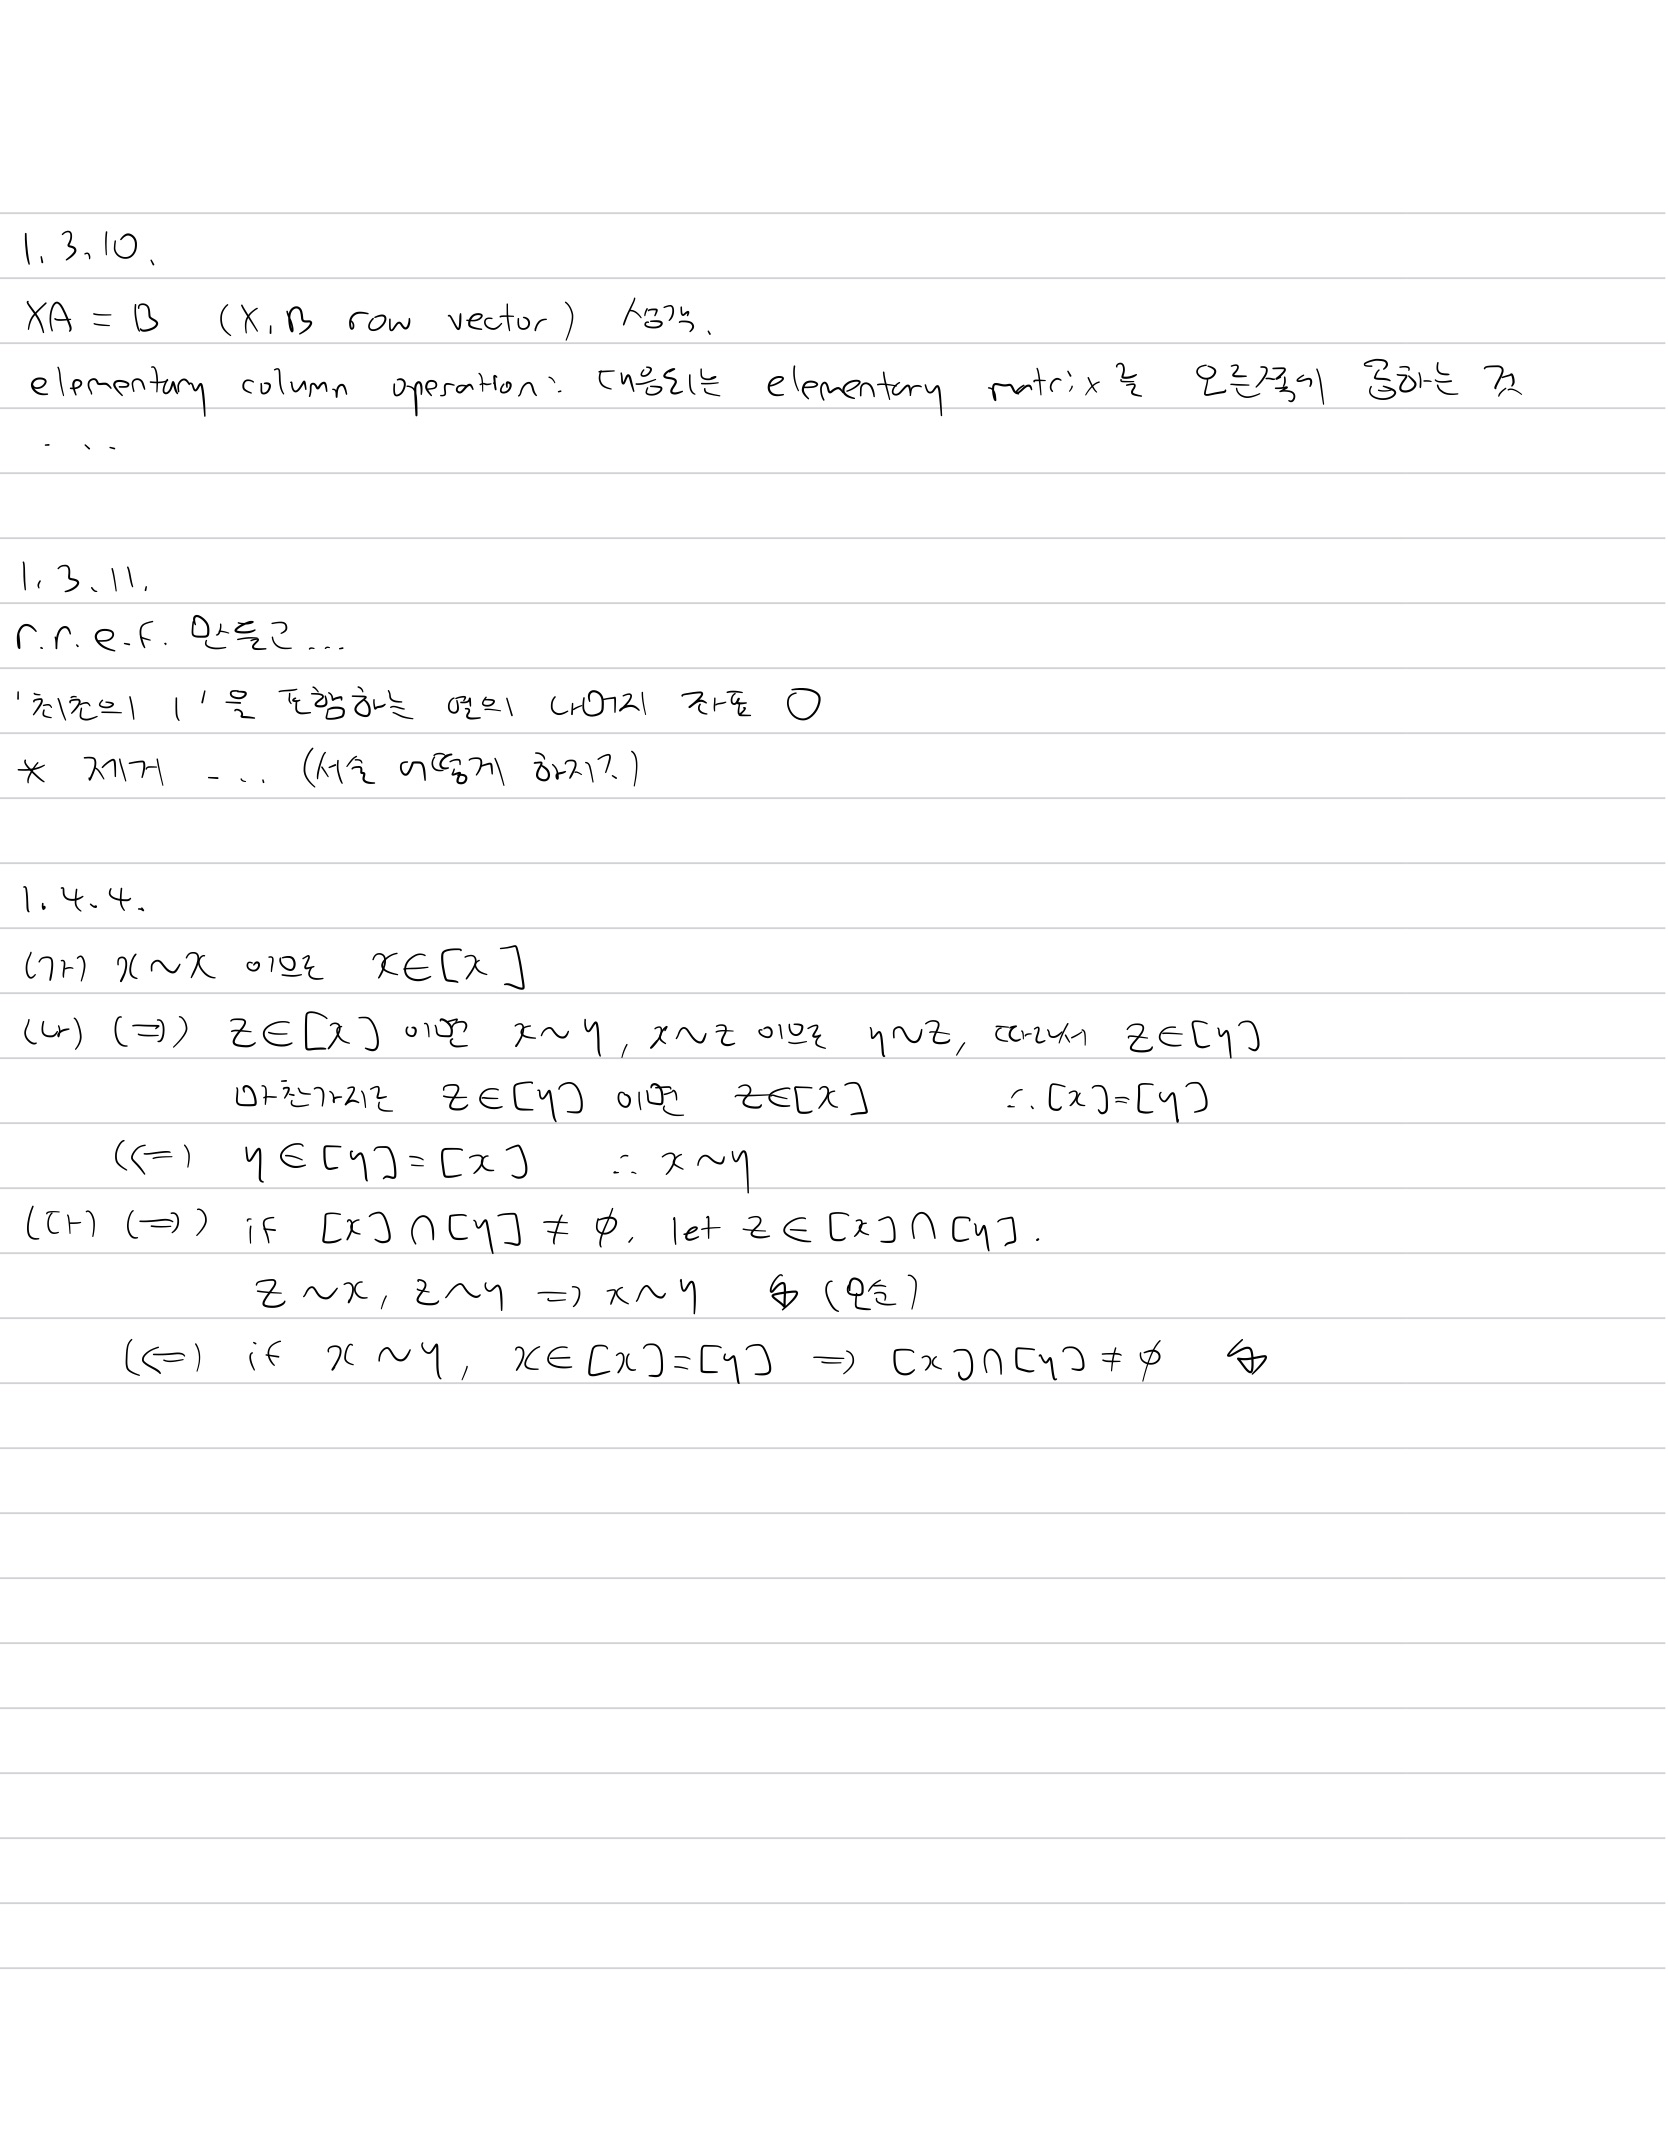 1.3.10.
XA = B (X, B row vector) 생각.
elementary column operation: 대응되는 elementary matrix를 오른쪽에 곱하는 것
...
1.3.11.
r.r.e.f. 만들고...
'최초의 1'을 포함하는 열의 나머지 좌표 0
* 제거 ... (서술 어떻게 하지?)
1.4.4.
(가) x~x 이므로 x∈[x]
(나) (⇒) z∈[x] 이면 x~y, x~z 이므로 y~z, 따라서 z∈[y]
마찬가지로 z∈[y] 이면 z∈[x] ∴ [x]=[y]
(⇐) y∈[y]=[x] ∴ x~y
(다) (⇒) if [x]∩[y] ≠ ∅, let z∈[x]∩[y].
z~x, z~y ⇒ x~y ↯ (모순)
(⇐) if x~y, x∈[x]=[y] ⇒ [x]∩[y] ≠ ∅ ↯